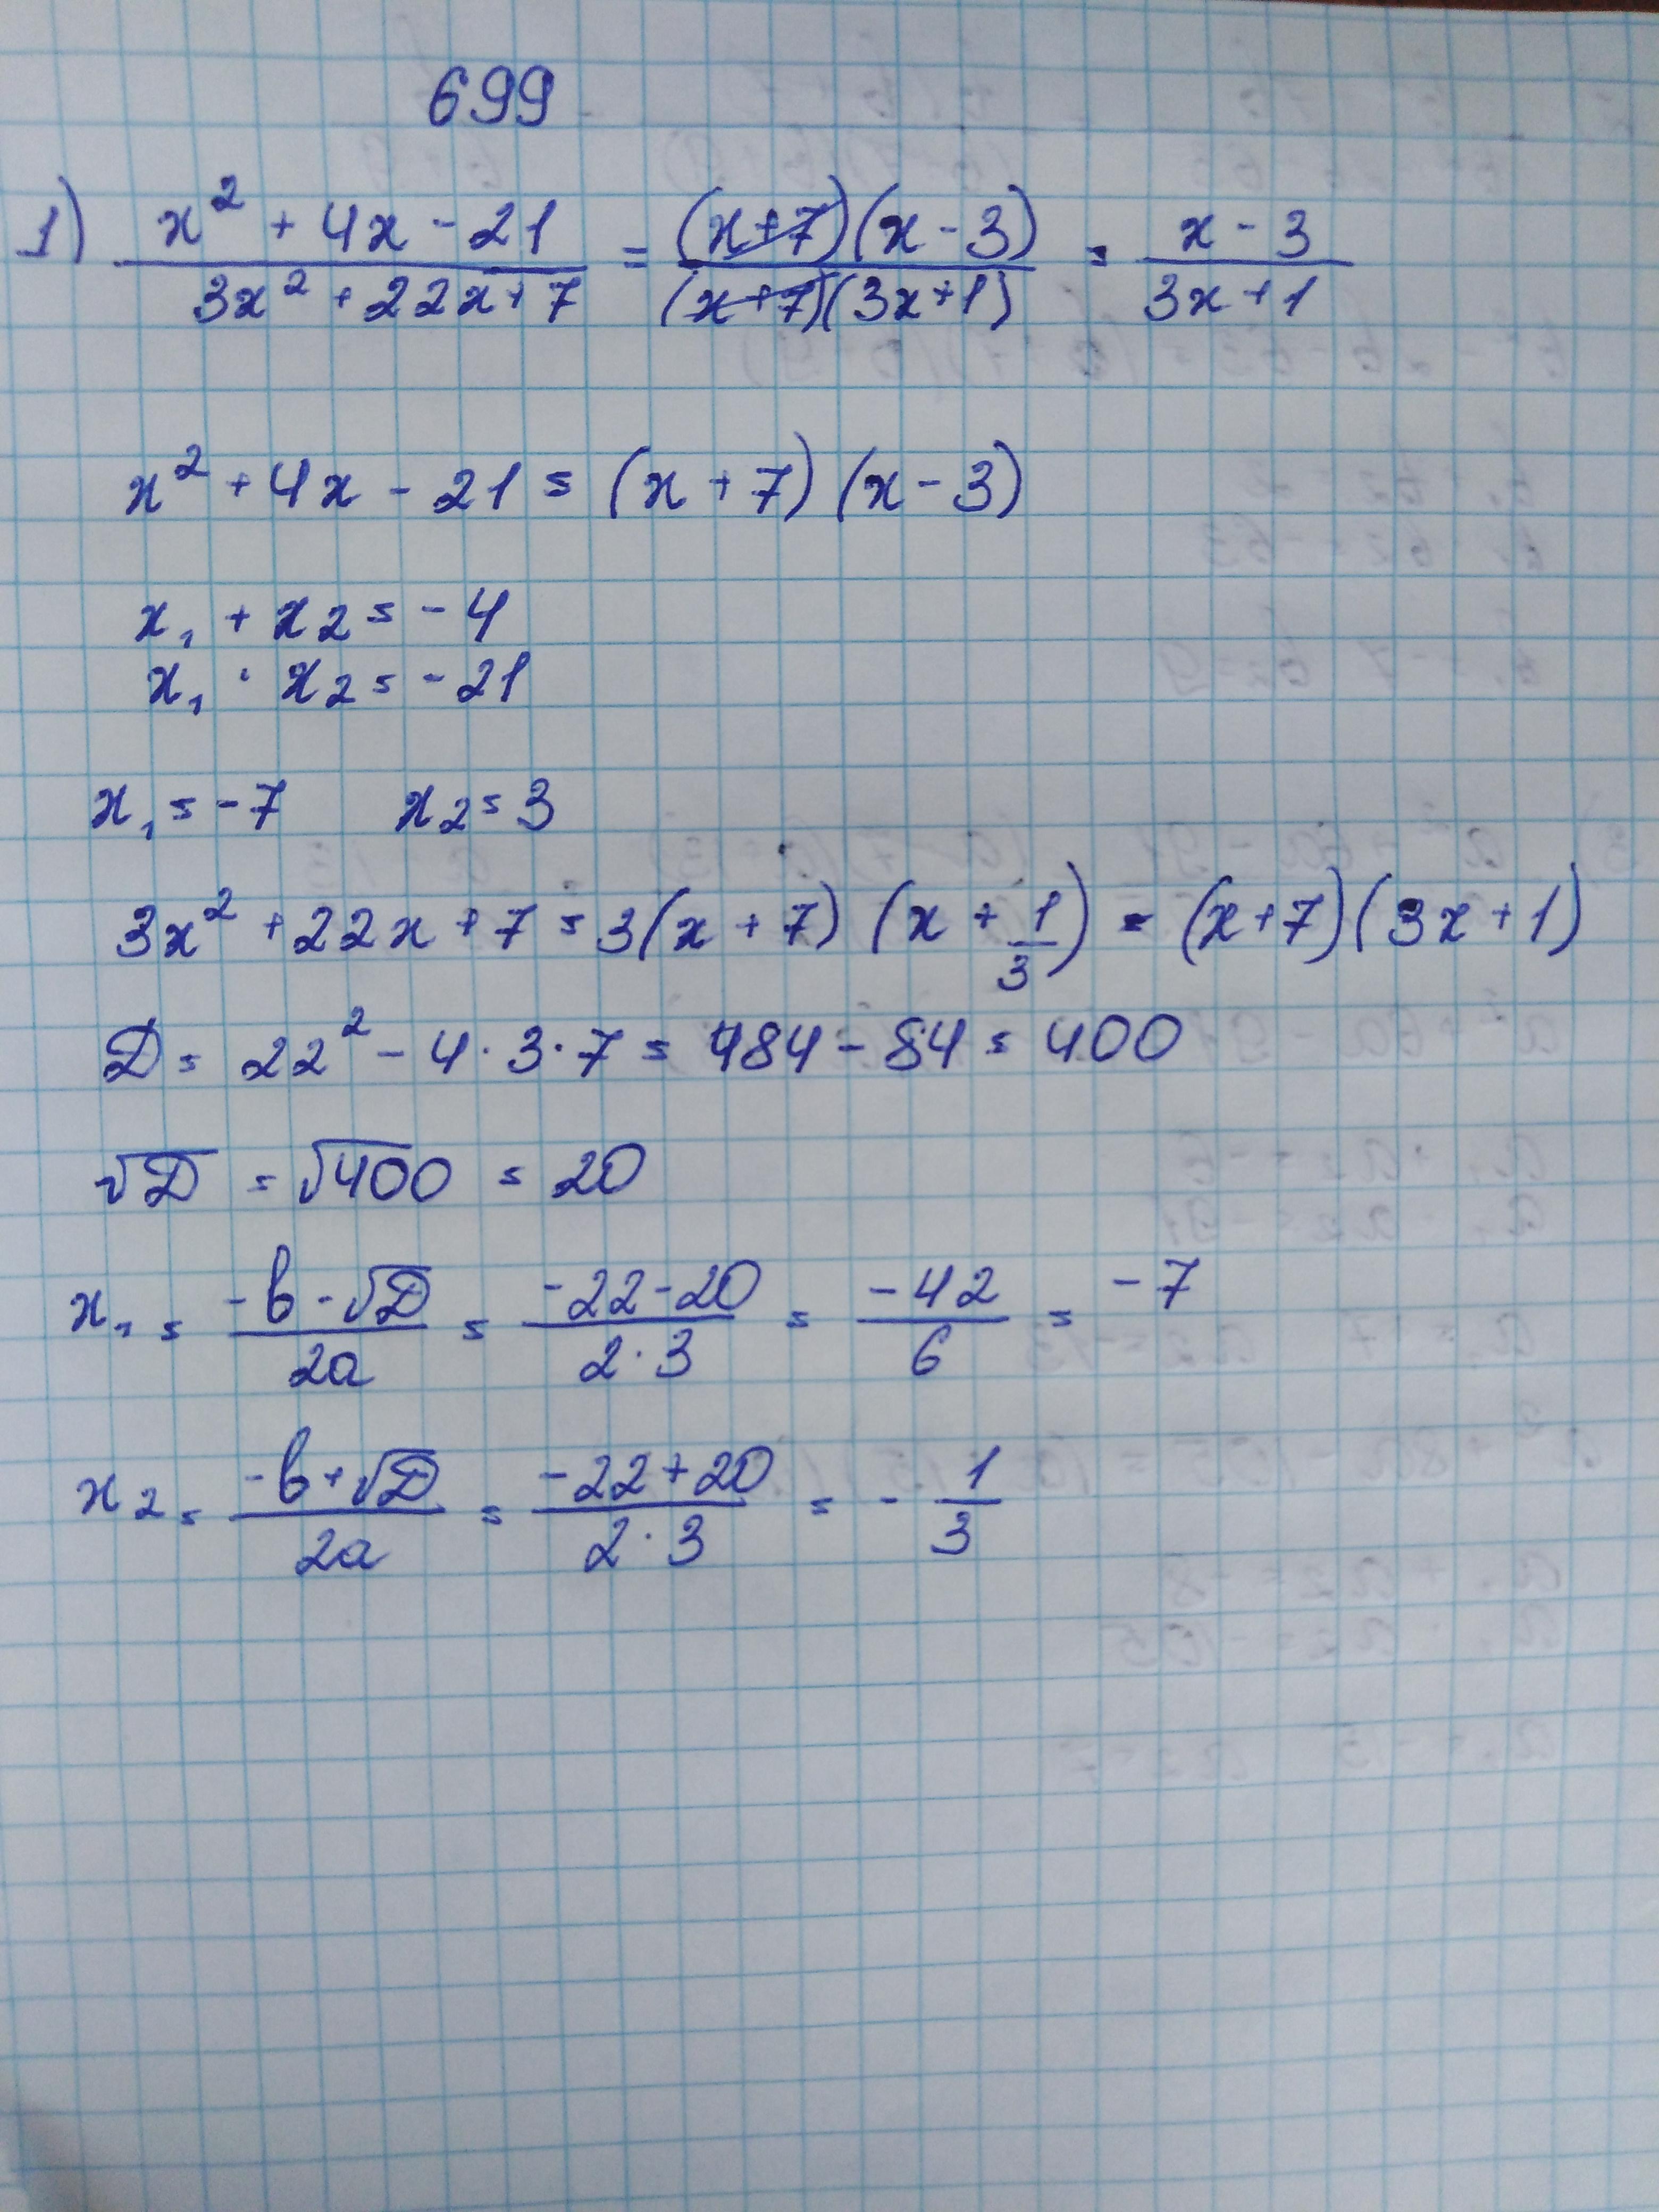 699
1) x² + 4x - 21 / 3x² + 22x + 7 = (x+7)(x-3) / (x+7)(3x+1) = x - 3 / 3x + 1
x² + 4x - 21 = (x + 7) (x - 3)
x₁ + x₂ = -4
x₁ · x₂ = -21
x₁ = -7 x₂ = 3
3x² + 22x + 7 = 3(x + 7) (x + 1/3) = (x+7)(3x+1)
D = 22² - 4 · 3 · 7 = 484 - 84 = 400
√D = √400 = 20
x₁ = -b - √D / 2a = -22 - 20 / 2 · 3 = -42 / 6 = -7
x₂ = -b + √D / 2a = -22 + 20 / 2 · 3 = - 1/3